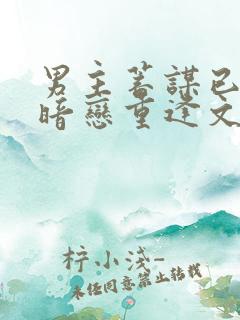 男主蓄謀已
暗戀重逢文
梓小浅-
未经同意禁止转载